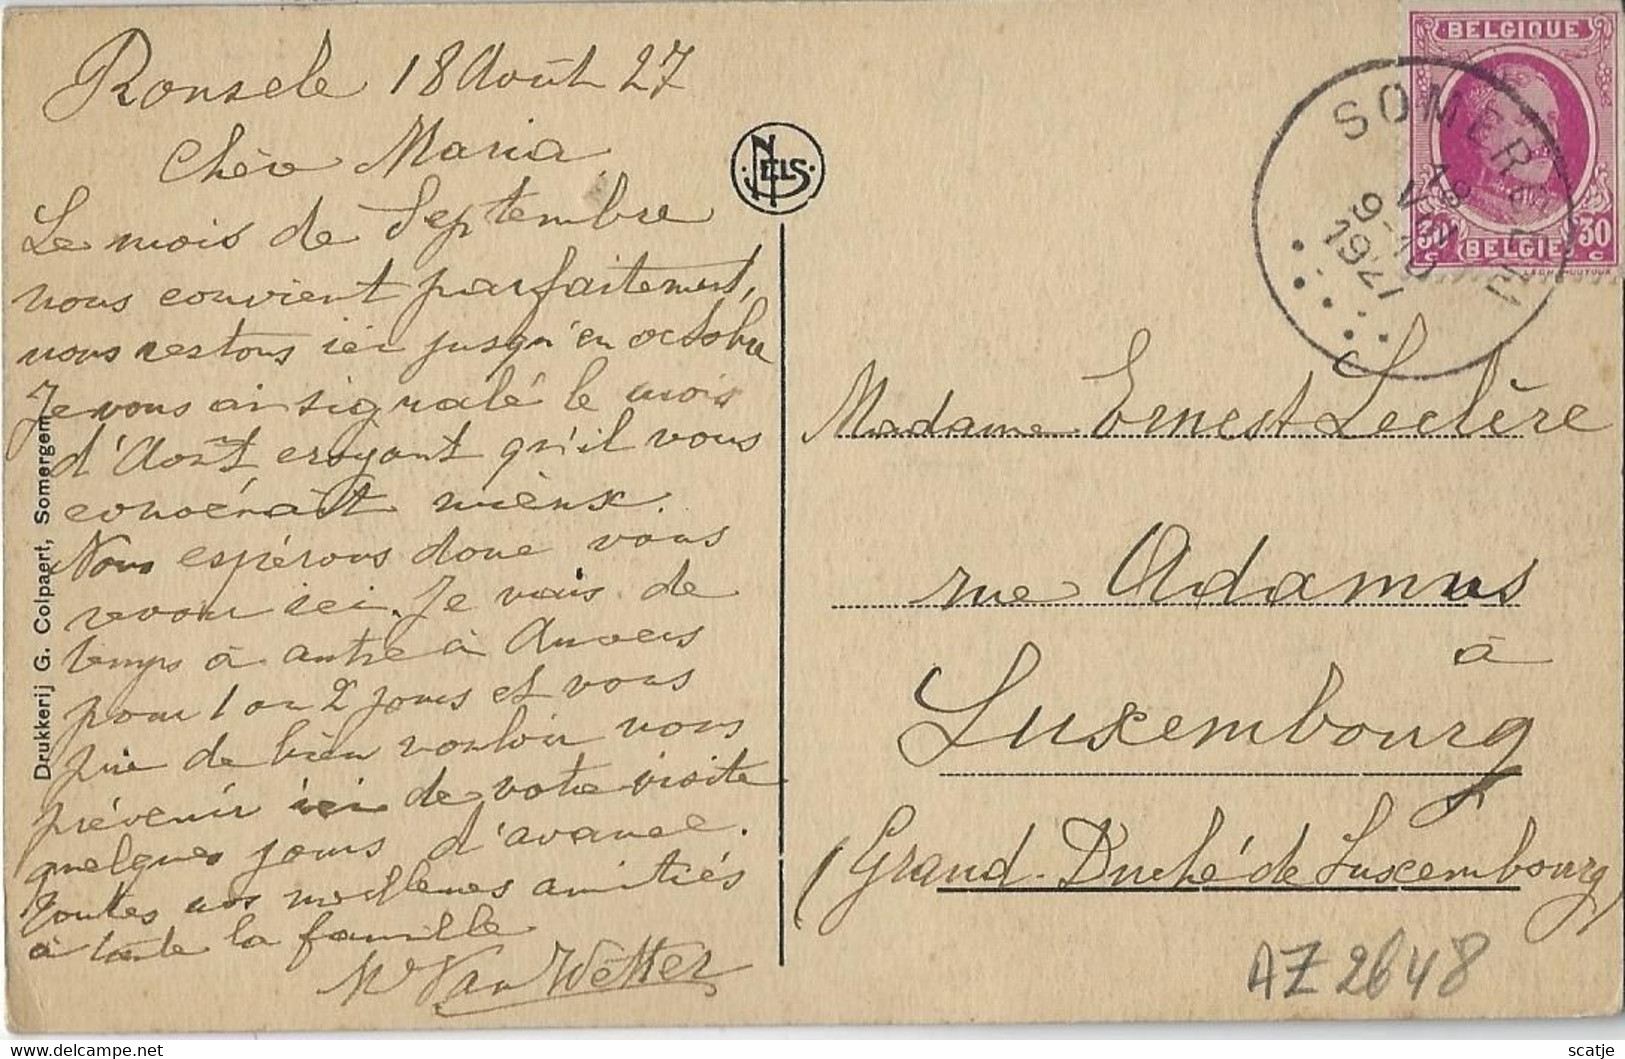 Ronsele 18 Août 27
Chère Maria,
Le mois de Septembre
nous convient parfaitement,
nous restons ici jusqu'en octobre
Je vous ai signalé le mois
d'Août, croyant qu'il vous
mieux.
Nous espérons donc vous
revoir ici. Je vais de
temps à autre à Anvers
pour 1 ou 2 jours et vous
prie de bien vouloir vous
prévenir ici de votre visite
quelques jours d'avance.
Toutes nos meilleures amitiés
à toute la famille
Van Wetter
Drukkerij G. Colpaert, Somergem
NELS
BELGIQUE
30 c BELGIE 30 c
SOMERGEM
18 VIII
9-10
1927
Madame Ernest Leclère
rue Adamus
à
Luxembourg
(Grand-Duché de Luxembourg)
AZ 2648
delcampe.net
scatje